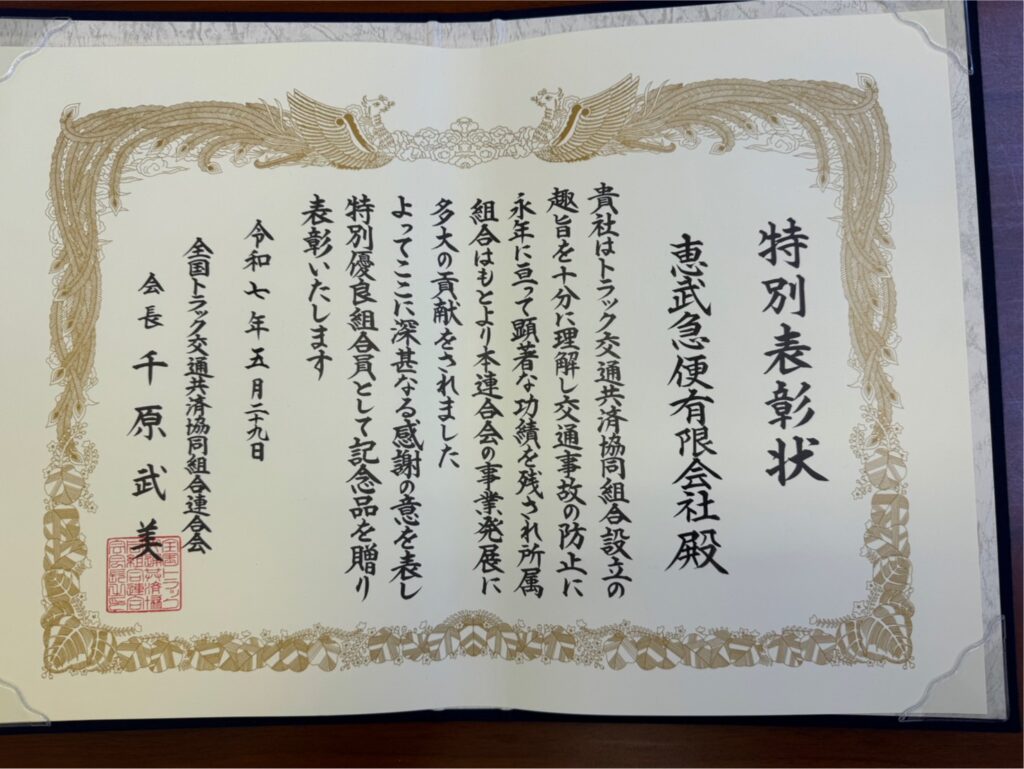 特別表彰状
恵武急便有限会社殿
貴社はトラック交通共済協同組合設立の
趣旨を十分に理解し交通事故の防止に
永年に亘って顕著な功績を残され所属
組合はもとより本連合会の事業発展に
多大の貢献をされました
よってここに深甚なる感謝の意を表し
特別優良組合員として記念品を贈り
表彰いたします
令和七年五月二十九日
全国トラック交通共済協同組合連合会
会長 千原武美